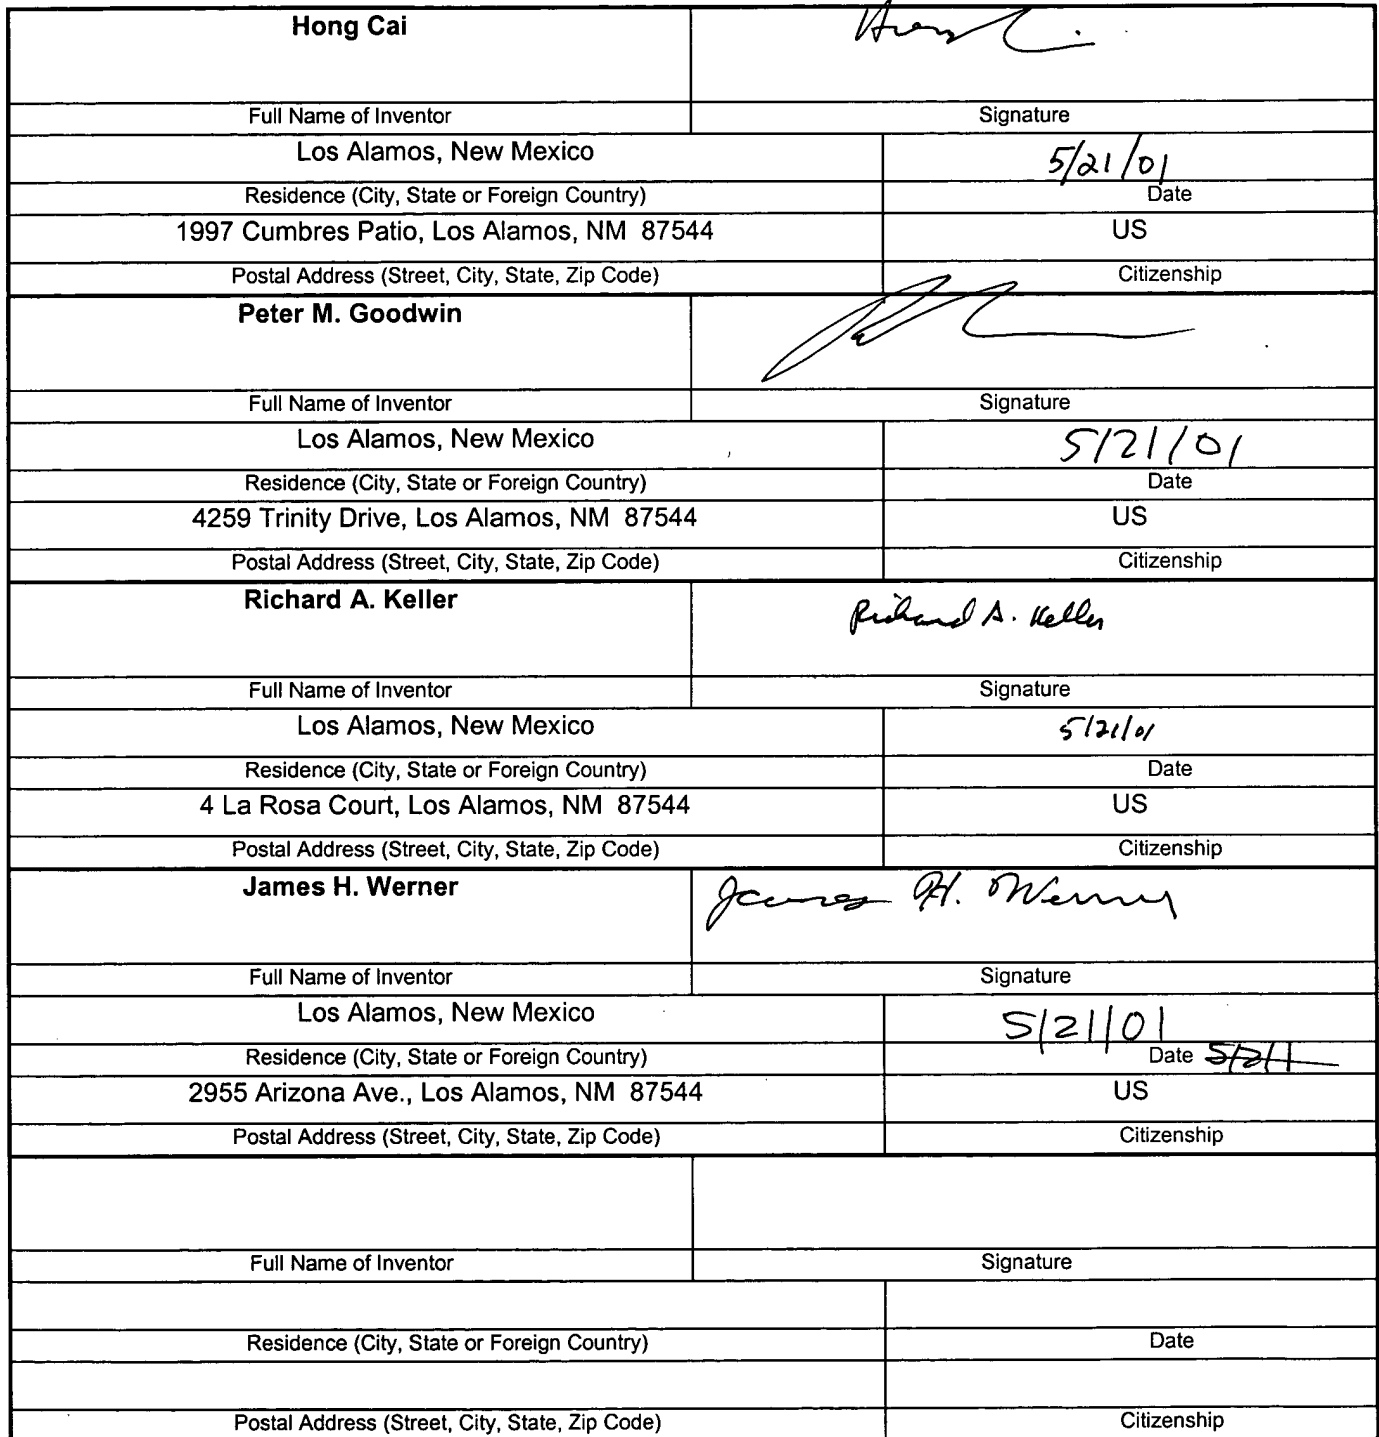 Hong Cai
Full Name of Inventor Signature
Los Alamos, New Mexico 5/21/01
Residence (City, State or Foreign Country) Date
1997 Cumbres Patio, Los Alamos, NM 87544 US
Postal Address (Street, City, State, Zip Code) Citizenship
Peter M. Goodwin
Full Name of Inventor Signature
Los Alamos, New Mexico 5/21/01
Residence (City, State or Foreign Country) Date
4259 Trinity Drive, Los Alamos, NM 87544 US
Postal Address (Street, City, State, Zip Code) Citizenship
Richard A. Keller Richard A. Keller
Full Name of Inventor Signature
Los Alamos, New Mexico 5/21/01
Residence (City, State or Foreign Country) Date
4 La Rosa Court, Los Alamos, NM 87544 US
Postal Address (Street, City, State, Zip Code) Citizenship
James H. Werner James H. Werner
Full Name of Inventor Signature
Los Alamos, New Mexico 5/21/01
Residence (City, State or Foreign Country) Date
2955 Arizona Ave., Los Alamos, NM 87544 US
Postal Address (Street, City, State, Zip Code) Citizenship
Full Name of Inventor Signature
Residence (City, State or Foreign Country) Date
Postal Address (Street, City, State, Zip Code) Citizenship